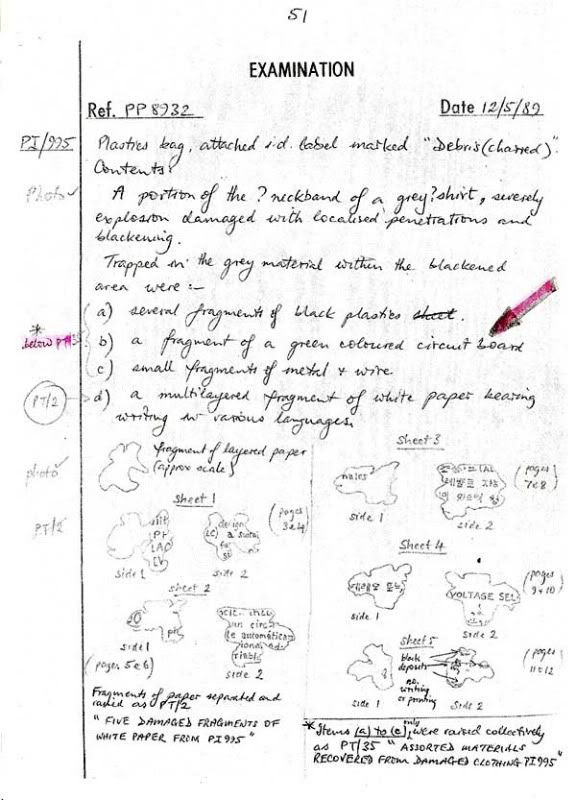 51
EXAMINATION
Ref. PP8932 Date 12/5/89
PI/995 Plastics bag, attached i.d. label marked "Debris (charred)".
Contents:
Photo A portion of the ? neckband of a grey ? shirt, severely
explosion damaged with localised penetrations and
blackening.
Trapped in the grey material within the blackened
area were :-
a) several fragments of black plastics sheet.
* below PT/35 b) a fragment of a green coloured circuit board
c) small fragments of metal & wire.
PT/2 d) a multilayered fragment of white paper bearing
writing in various languages.
photo fragment of layered paper
(approx scale)
PT/2
Sheet 1
(pages 3 & 4)
side 1
side 2
Sheet 2
side 1
side 2
(pages 5 & 6)
Fragments of paper separated and
raised as PT/2
" FIVE DAMAGED FRAGMENTS OF
WHITE PAPER FROM PI995 "
Sheet 3
(pages 7 & 8)
side 1
side 2
Sheet 4
VOLTAGE SEL
(pages 9 & 10)
side 1
side 2
Sheet 5
black deposits
no writing or printing
(pages 11 & 12)
side 2
* Items (a) to (c) only, were raised collectively
as PT/35 " ASSORTED MATERIALS
RECOVERED FROM DAMAGED CLOTHING PI995 "